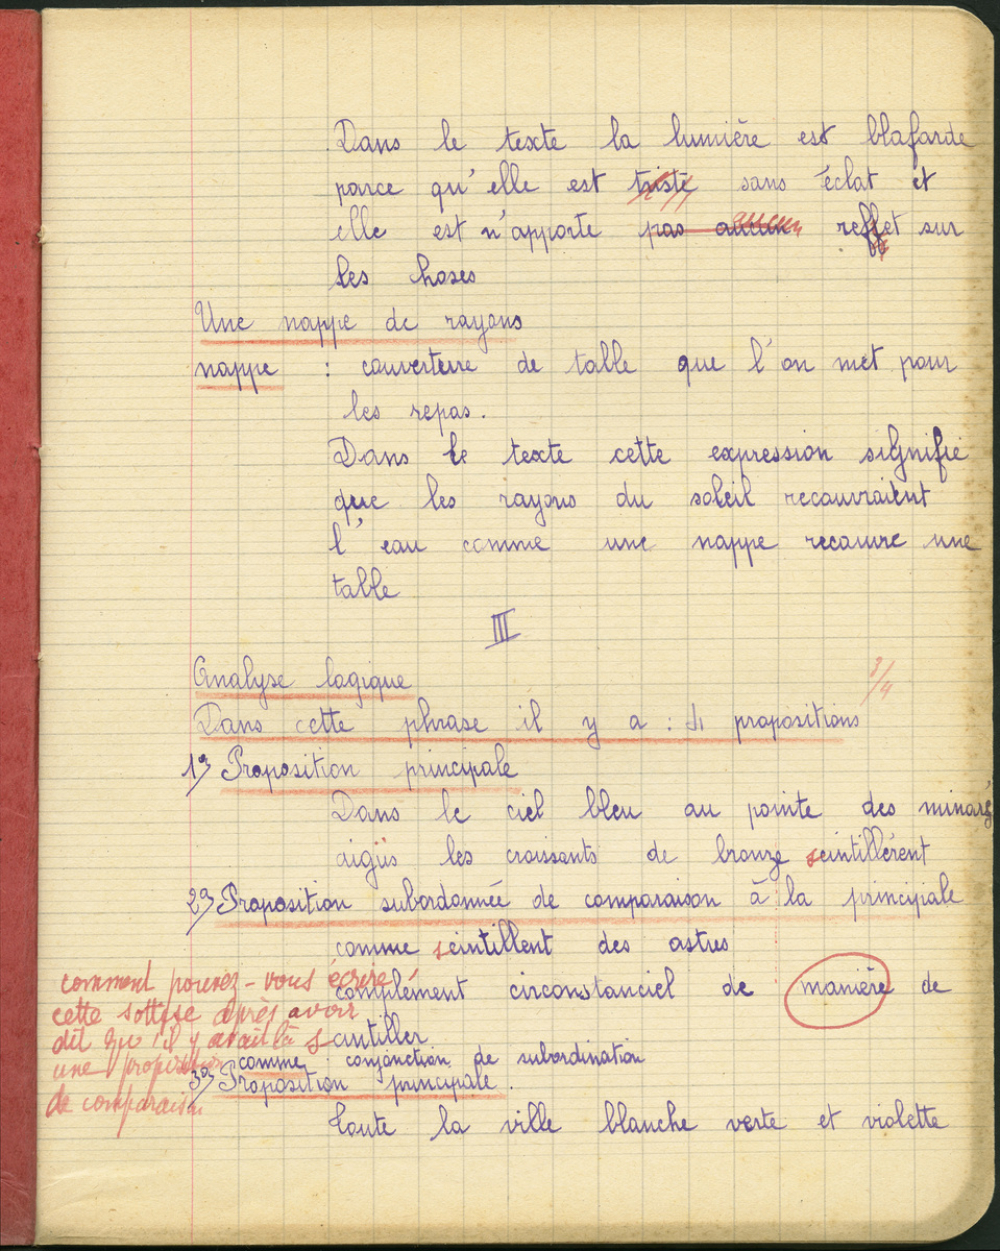 Dans le texte la lumière est blafarde
parce qu'elle est triste sans éclat et
elle est n'apporte pas aucun reffet sur
les hoses
Une nappe de rayons
nappe : couverture de table que l'on met pour
les repas.
Dans le texte cette expression signifie
que les rayons du soleil recouvraient
l'eau comme une nappe recouvre une
table
III
Analyse logique
3/4
Dans cette phrase il y a : 4 propositions
1º) Proposition principale
Dans le ciel bleu au pointe des minarêts
aigüs les croissants de bronze scintillèrent
2º) Proposition subordonnée de comparaison à la principale
comme scintillent des astres
complément circonstanciel de manière de
scintiller
comme : conjonction de subordination
comment pouvez-vous écrire
cette sottise après avoir
dit qu'il y avait là
une proposition
de comparaison
3º) Proposition principale.
toute la ville blanche verte et violette